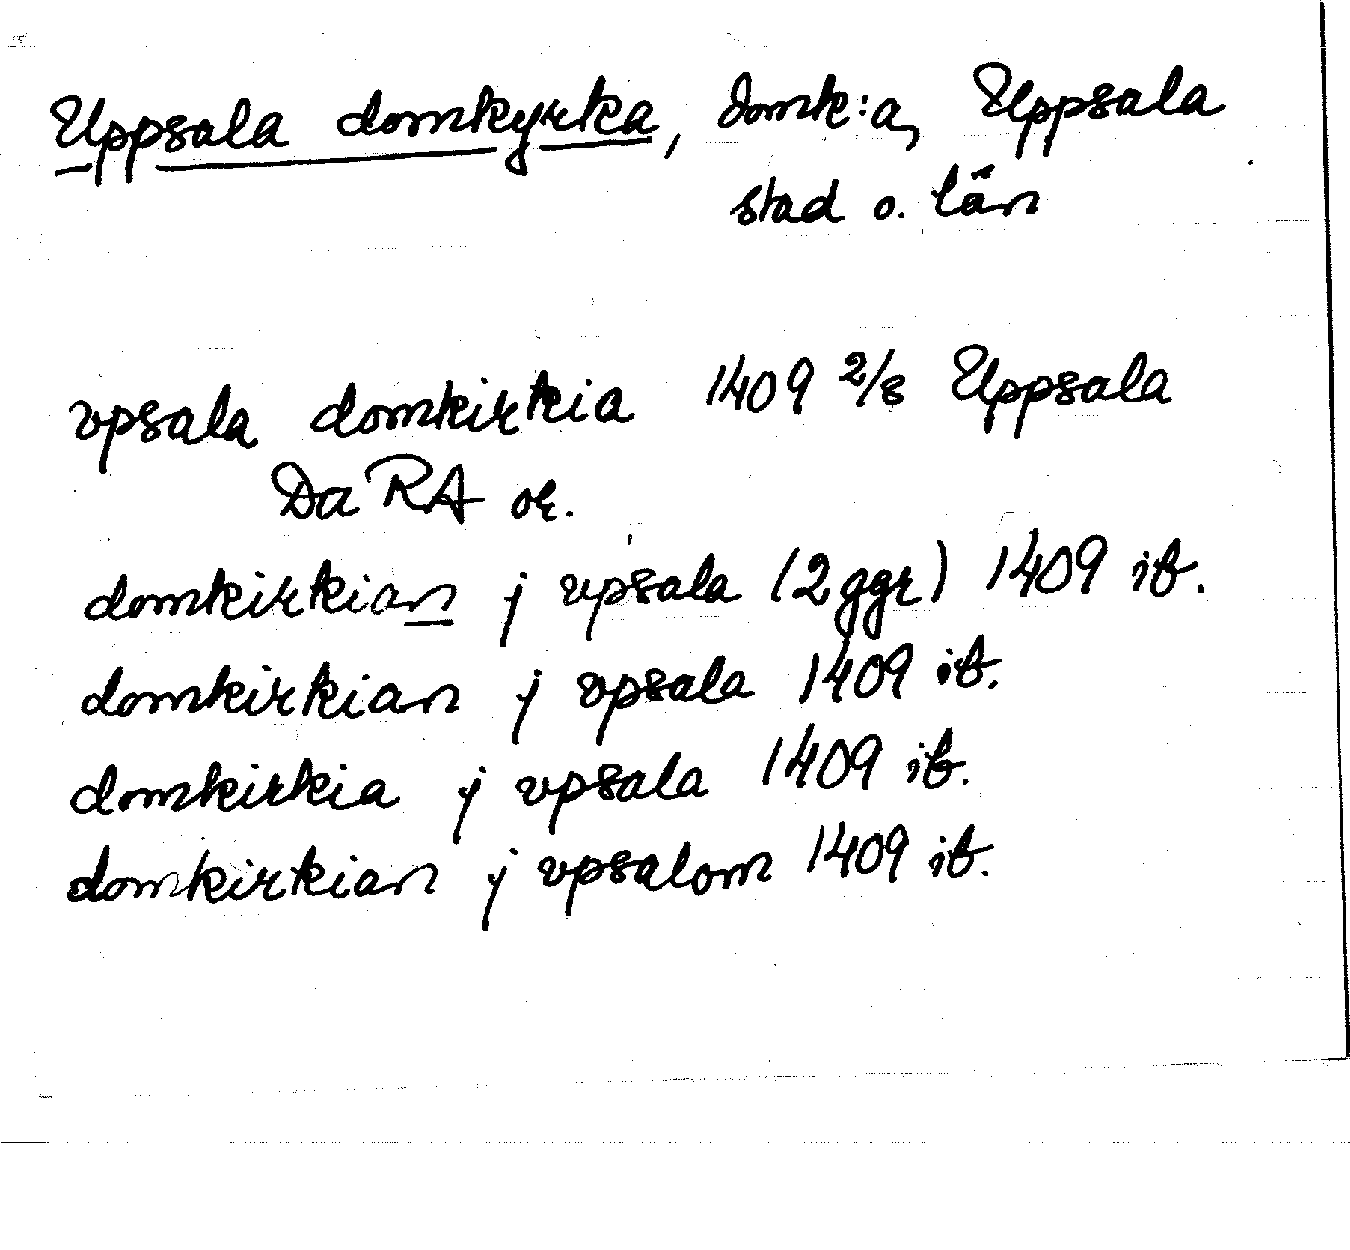 Uppsala domkyrka, domk:a, Uppsala
stad o. län
vpsala domkirkia 1409 2/8 Uppsala
Da RA or.
domkirkian j vpsala (2 ggr) 1409 ib.
domkirkian j vpsala 1409 ib.
domkirkia j vpsala 1409 ib.
domkirkian j vpsalom 1409 ib.